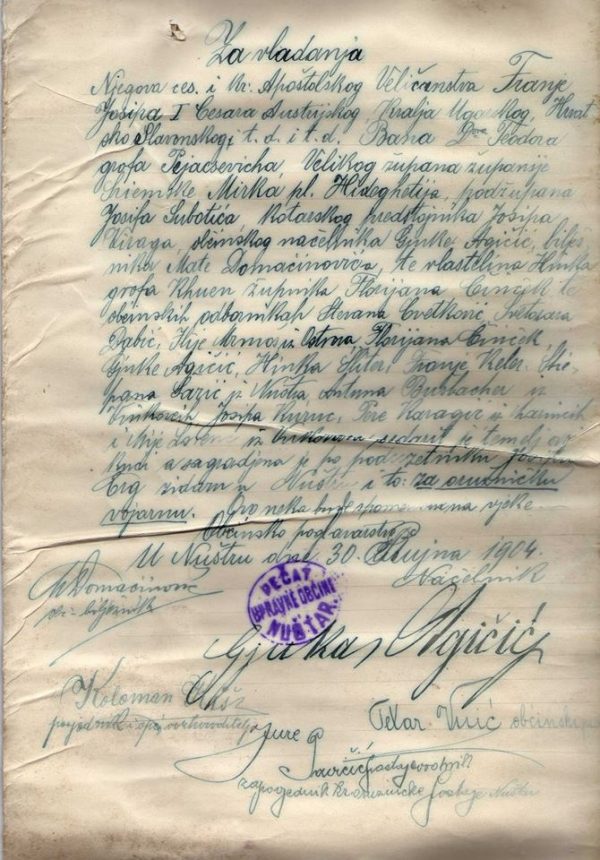 Za vladanja
Njegova ces. i kr. Apoštolskog Veličanstva Franje
Josipa I Cesara Austrijskog, Kralja Ugarskog, Hrvat
sko Slavonskog i t. d. i t. d. Bana Teodora
grofa Pejacsevicha, Velikog župana županije
Mirka pl. Hideghetija, podžupana
Josifa Subotića kotarskog predstojnika Josipa
Viraga, občinskog načelnika Gjuke Agičić, bilježnika
Mate Domaćinovića, te vlastelina Hinka
grofa Khuen župnika Florijana Cinček te
obćinskih odbornikah Stevana Cvetković, Svetozara
Dabić, Ilije Mrmoš iz Ostrva, Florijana Cinček,
Gjuke Agičić, Hinka Franje Keler, Stje-
pana Lazić iz Nuštra, Antuna Burbacher iz
Vinkovcih Josipa Pere Karagić iz
i Ilije iz Vinkovaca je temelj ovoj
kući a sagradjena je po poduzetniku
Erg zidaru u Nuštru i to: za oružničku
vojarnu. Ovo neka bude na vjeke.
Obćinsko poglavarstvo
U Nuštru dne 30 Rujna 1904.
Načelnik
M Domaćinović
bilježnik
PEČAT
UPRAVNE OBĆINE
NUŠTAR.
Gjuka Agičić
Koloman
Jure
obćinski
zapovjednik oružničke postaje Nuštar